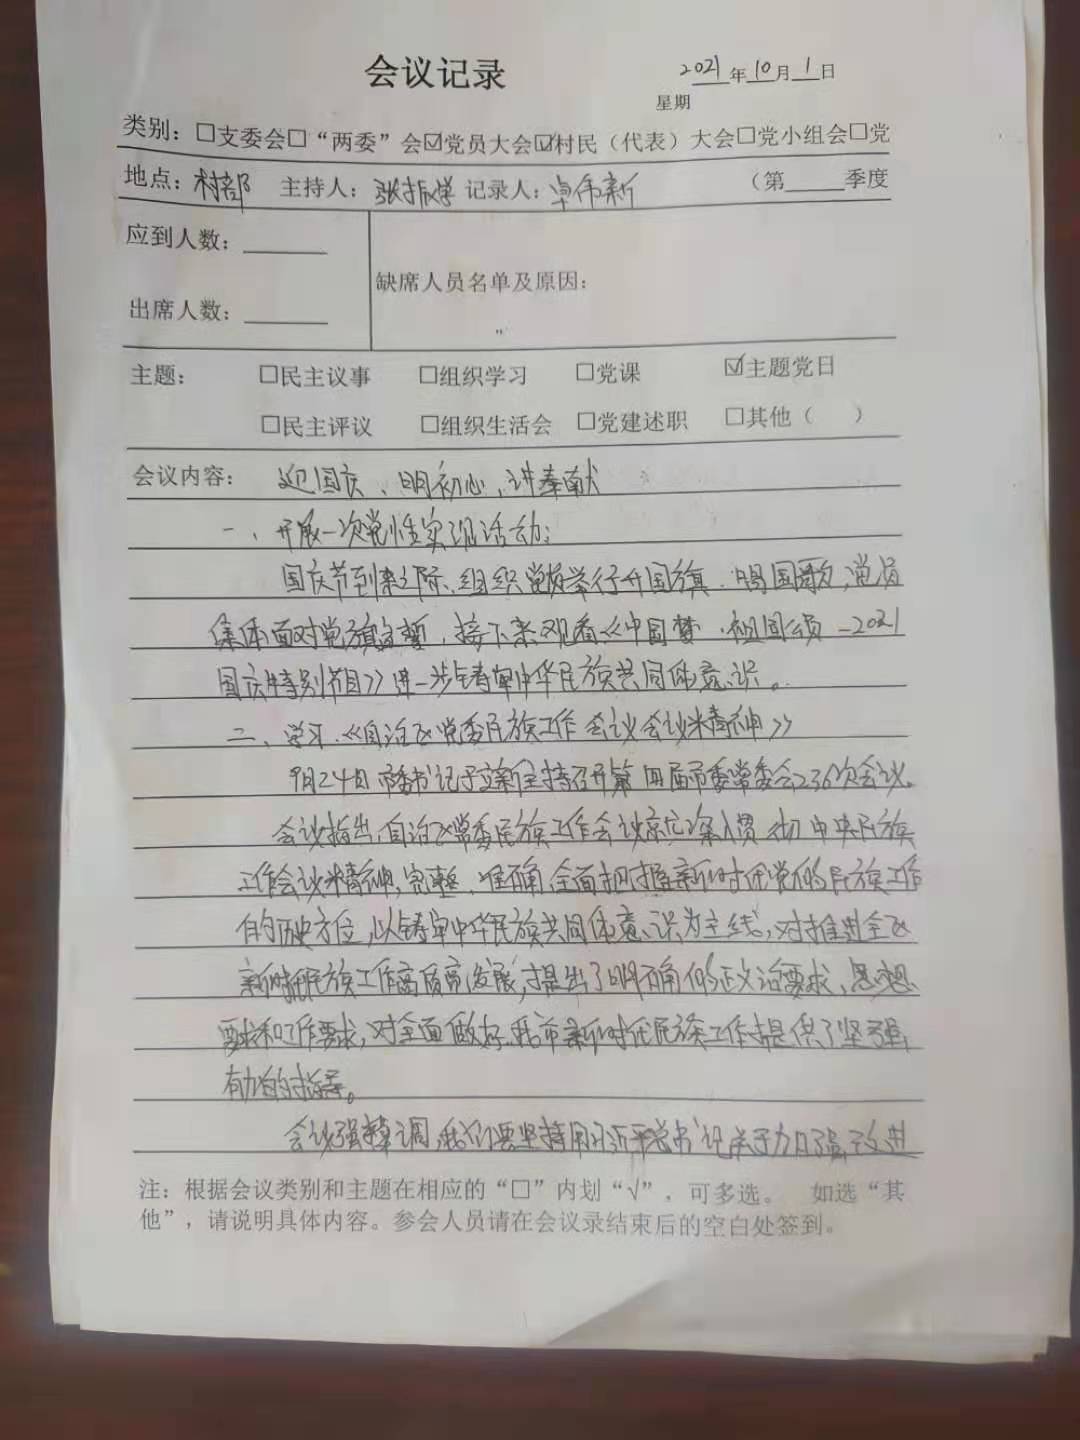 会议记录
2021年10月1日
星期
类别：☐支委会☐“两委”会☑党员大会☑村民（代表）大会☐党小组会☐党
地点：村部 主持人：张振学 记录人：卓伟新 （第____季度
应到人数：
缺席人员名单及原因：
出席人数：
主题： ☐民主议事 ☐组织学习 ☐党课 ☑主题党日
☐民主评议 ☐组织生活会 ☐党建述职 ☐其他（ ）
会议内容： 迎国庆、明初心、讲奉献
一、开展一次党性实践活动：
国庆节到来之际、组织党员举行升国旗、唱国歌，党员
集体面对党旗宣誓，接下来观看《中国梦·祖国颂—2021
国庆特别节目》进一步铸牢中华民族共同体意识。
二、学习《自治区党委民族工作会议会议精神》
9月24日市委书记于立新主持召开第四届市委常委会236次会议。
会议指出，自治区党委民族工作会议深入贯彻中央民族
工作会议精神，完整、准确、全面把握新时代党的民族工作
的历史方位，以铸牢中华民族共同体意识为主线，对推进全区
新时代民族工作高质量发展，提出了明确的政治要求、思想
要求和工作要求，对全面做好我市新时代民族工作提供了坚强
有力的指导。
会议强调，我们要坚持用习近平总书记关于加强改进
注：根据会议类别和主题在相应的“☐”内划“√”，可多选。 如选“其
他”，请说明具体内容。参会人员请在会议录结束后的空白处签到。